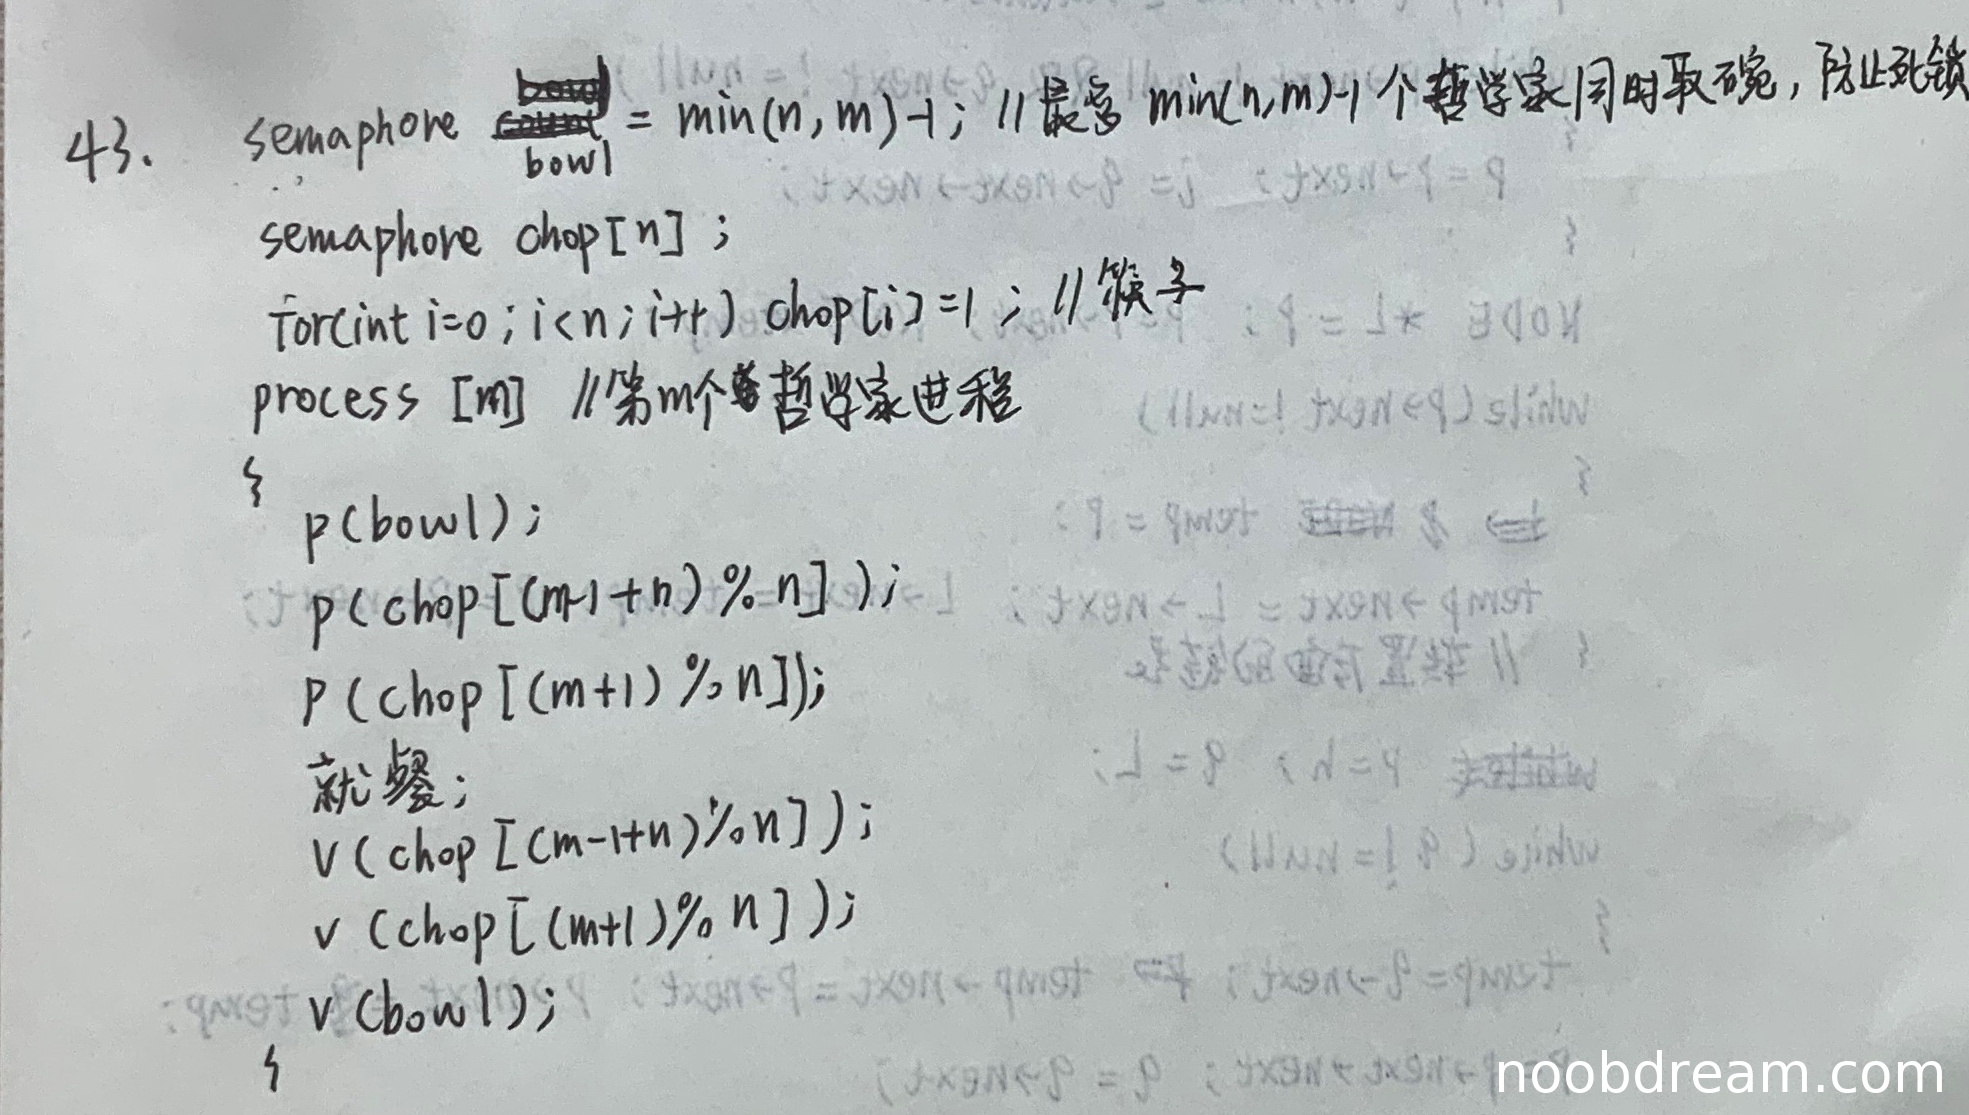 43. semaphore bowl = min(n, m)-1; //最多 min(n,m)-1个哲学家同时取碗，防止死锁
semaphore chop[n];
for(int i=0; i<n; i++) chop[i]=1; //筷子
process [m] //第m个哲学家进程
{
p(bowl);
p(chop[(m-1+n)%n]);
p(chop[(m+1)%n]);
就餐;
v(chop[(m-1+n)%n]);
v(chop[(m+1)%n]);
v(bowl);
}
noobdream.com